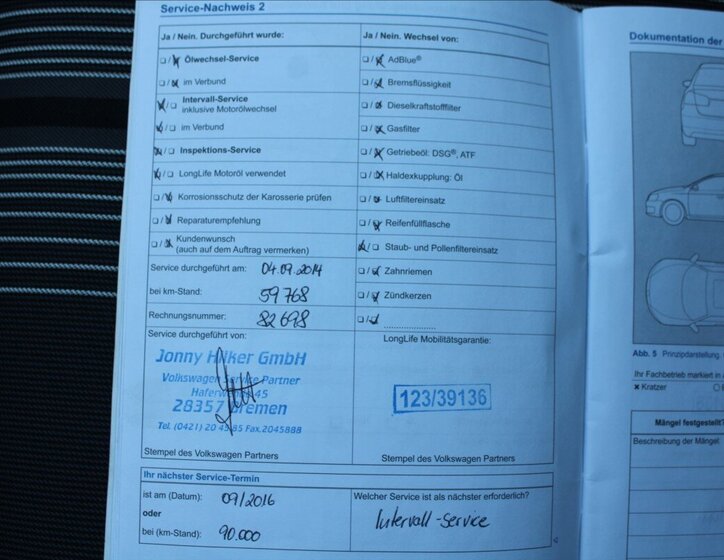 Service-Nachweis 2
Ja / Nein. Durchgeführt wurde:
Ölwechsel-Service
im Verbund
Intervall-Service
inklusive Motorölwechsel
im Verbund
Inspektions-Service
LongLife Motoröl verwendet
Korrosionsschutz der Karosserie prüfen
Reparaturempfehlung
Kundenwunsch
(auch auf dem Auftrag vermerken)
Service durchgeführt am: 04.09.2014
bei km-Stand: 59768
Rechnungsnummer: 82698
Service durchgeführt von:
Jonny Hilker GmbH
Volkswagen Service Partner
45
28357 Bremen
Tel. (0421) 20 45 85 Fax.2045888
Stempel des Volkswagen Partners
Ja / Nein. Wechsel von:
AdBlue®
Bremsflüssigkeit
Dieselkraftstofffilter
Gasfilter
Getriebeöl: DSG®, ATF
Haldexkupplung: Öl
Luftfiltereinsatz
Reifenfüllflasche
Staub- und Pollenfiltereinsatz
Zahnriemen
Zündkerzen
LongLife Mobilitätsgarantie:
123/39136
Stempel des Volkswagen Partners
Ihr nächster Service-Termin
ist am (Datum): 09/2016
oder
bei (km-Stand): 90.000
Welcher Service ist als nächster erforderlich?
Intervall-Service
Dokumentation der
Abb. 5 Prinzipdarstellung
Ihr Fachbetrieb markiert in
Kratzer
Mängel festgestellt?
Beschreibung der Mängel